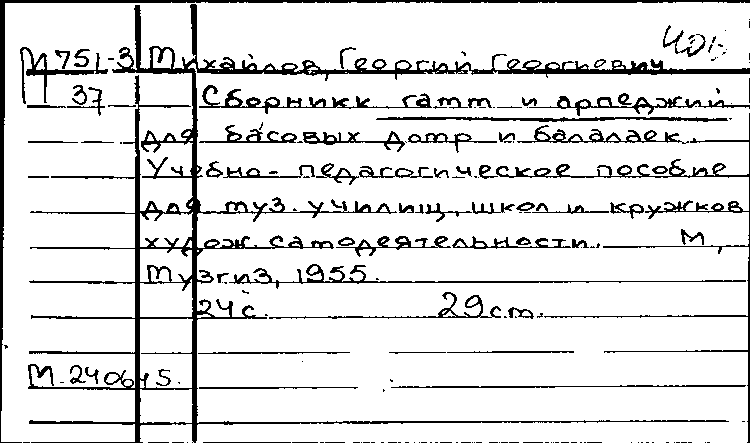 М751-3 Михайлов, Георгий Георгиевич
37 Сборникк гамм и арпеджий
для басовых домр и балалаек.
Учебно-педагогическое пособие
для муз. училищ, школ и кружков
худож. самодеятельности. М,
Музгиз, 1955.
24с. 29см.